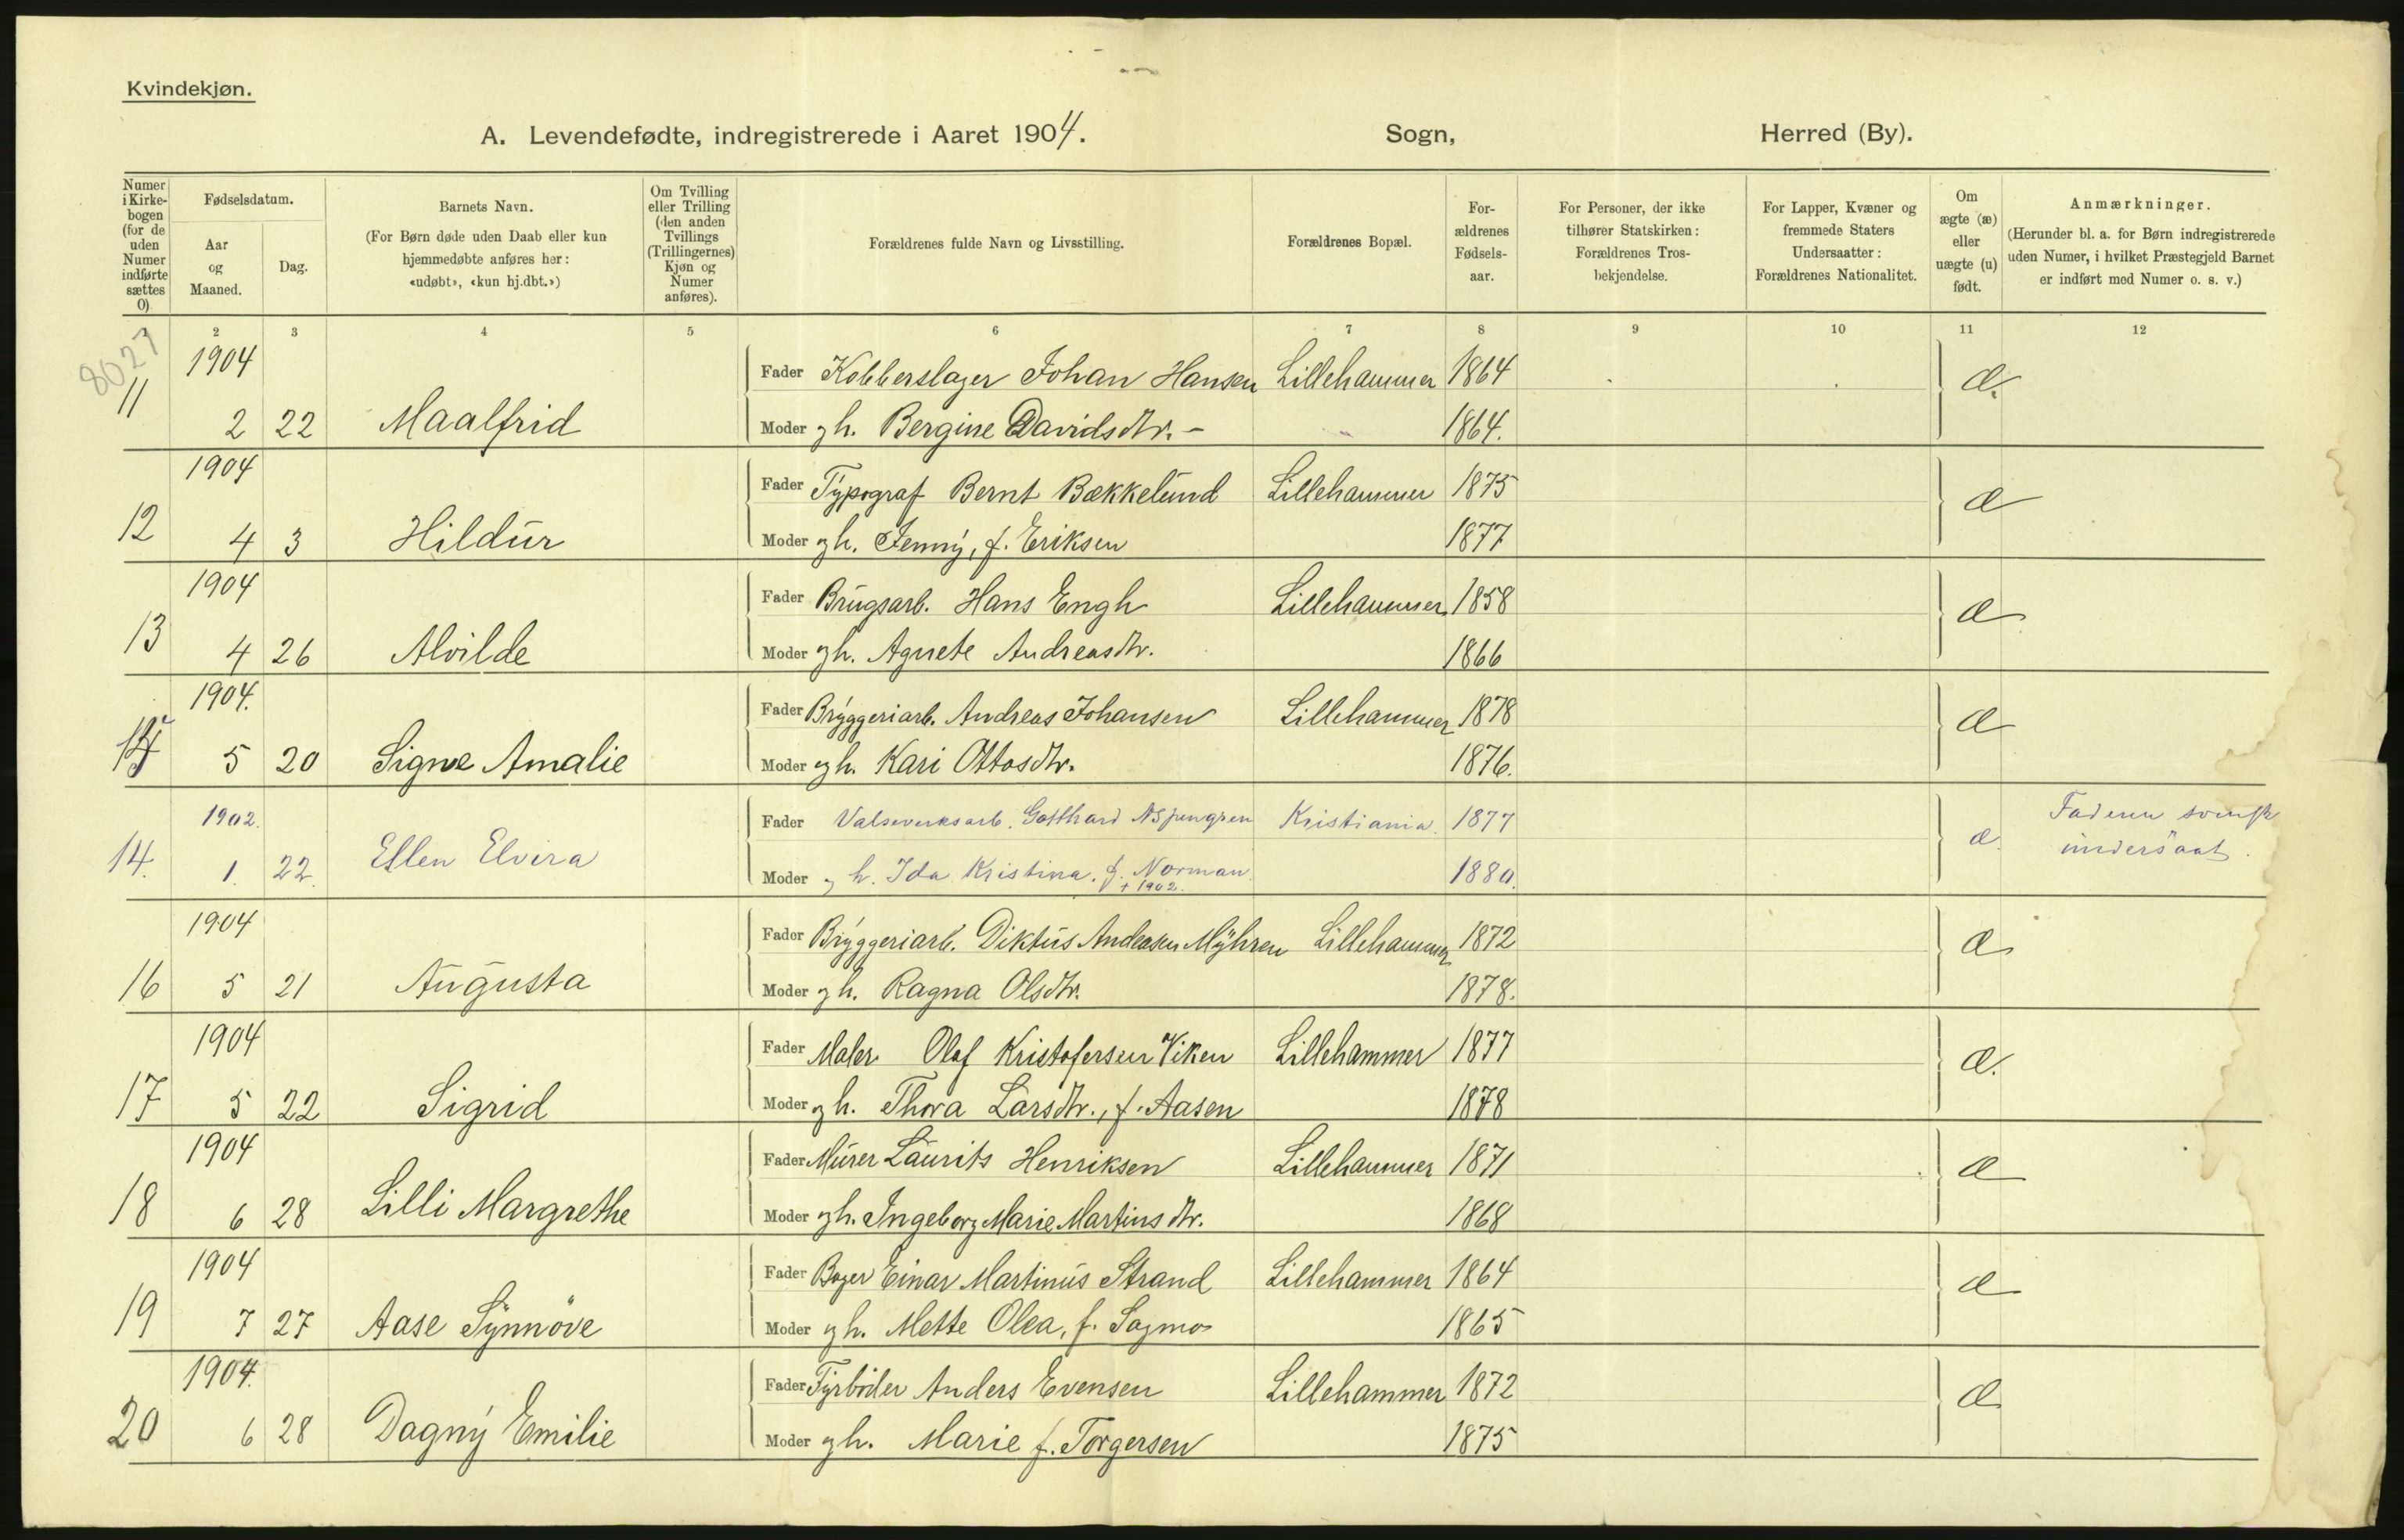 Kvindekjøn.
A. Levendefødte, indregistrerede i Aaret 1904. Sogn, Herred (By).
Numer i Kirkebogen (for de uden Numer indførte sættes 0)
Fødselsdatum.
Aar og Maaned.
Dag.
Barnets Navn.
(For Børn døde uden Daab eller kun hjemmedøbte anføres her: «udøbt», «kun hj.dbt.»)
Om Tvilling eller Trilling (den anden Tvillings (Trillingernes) Kjøn og Numer anføres).
Forældrenes fulde Navn og Livsstilling.
Forældrenes Bopæl.
Forældrenes Fødselsaar.
For Personer, der ikke tilhører Statskirken: Forældrenes Trosbekjendelse.
For Lapper, Kvæner og fremmede Staters Undersaatter: Forældrenes Nationalitet.
Om ægte (æ) eller uægte (u) født.
Anmærkninger.
(Herunder bl. a. for Børn indregistrerede uden Numer, i hvilket Præstegjeld Barnet er indført med Numer o. s. v.)
1 2 3 4 5 6 7 8 9 10 11 12
8027
1904 Fader Kobberslager Johan Hansen Lillehammer 1864 æ.
11 2 22 Maalfrid Moder gh. Bergine Davidsdtr. - 1864.
1904 Fader Typograf Bernt Bækkelund Lillehammer 1875 æ
12 4 3 Hildur Moder gh. Jenny, f. Eriksen 1877
1904 Fader Brugsarb. Hans Engh Lillehammer 1858 æ
13 4 26 Alvilde Moder gh. Agnete Andreasdtr. 1866
1904. Fader Bryggeriarb. Andreas Johansen Lillehammer 1878 æ
5 20 Signe Amalie Moder gh. Kari Ottosdtr. 1876.
1902. Fader Valseverksarb. Gotthard Kristiania. 1877 æ. Faderen svensk
14. 1. 22. Ellen Elvira Moder gh. Ida Kristina. f. Norman. 1880. undersaat.
+ 1902.
1904 Fader Bryggeriarb. Diktus Andeasen Myhren Lillehammer 1872 æ
16 5 21 Augusta Moder gh. Ragna Olsdtr. 1878.
1904 Fader Maler Olaf Kristofersen Viken Lillehammer 1877 æ.
17 5 22 Sigrid Moder gh. Thora Larsdtr., f. Aasen 1878
1904 Fader Murer Laurits Henriksen Lillehammer 1871 æ
18 6 28 Lilli Margrethe Moder gh. Ingeborg Marie Martinsdtr. 1868
1904 Fader Bager Einar Martinus Strand Lillehammer 1864 æ
19 7 27 Aase Synnöve Moder gh. Mette Olea, f. Sagmo 1865
1904. Fader Fyrböder Anders Evensen Lillehammer 1872 æ
20 6 28 Dagny Emilie Moder gh. Marie f. Torgersen 1875